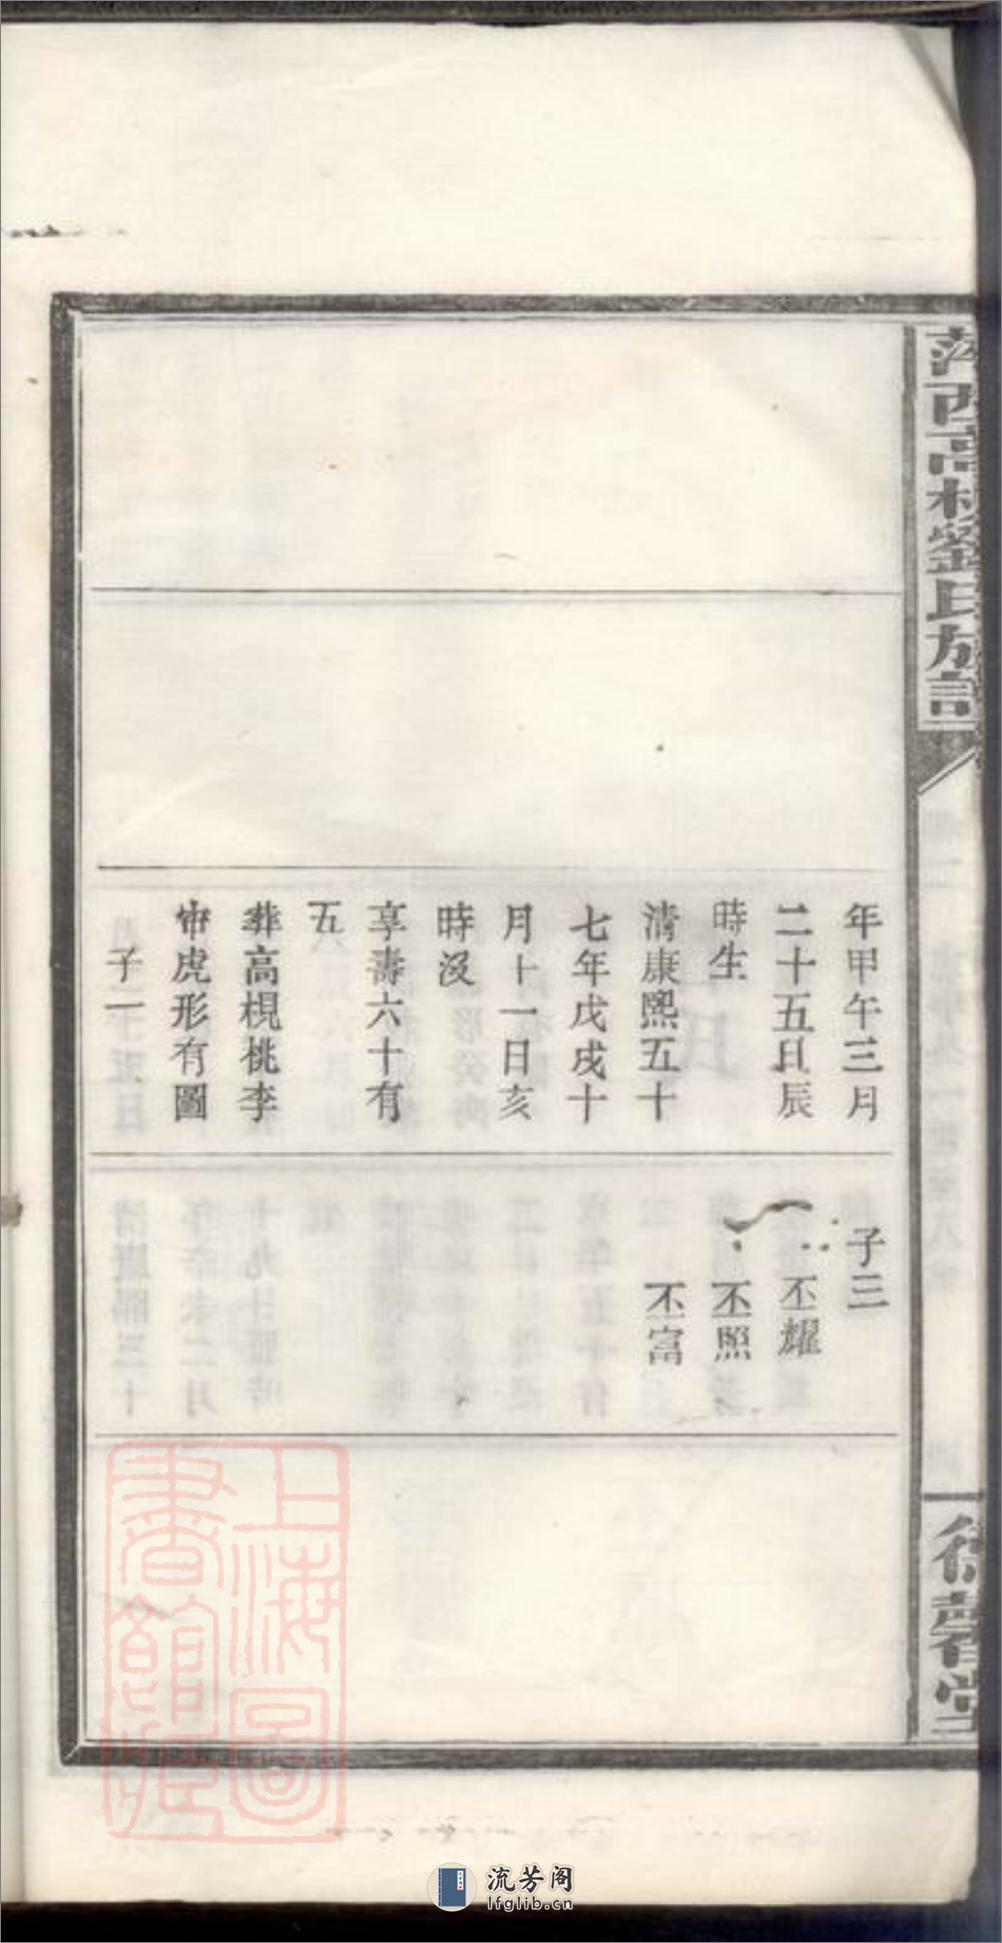 萍西高梘劉氏族譜
年甲午三月
二十五日辰
時生
清康熙五十
七年戊戌十
月十一日亥
時沒
享壽六十有
五
葬高梘桃李
冲虎形有圖
子一
子三
丕耀
丕照
丕富
堂
上海圖
書館藏
流芳阁
lfglib.cn